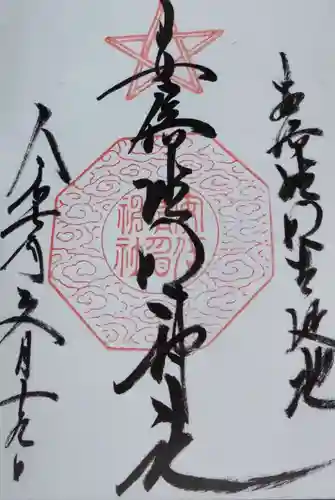 安倍晴明生誕地
安倍晴明神社
安倍
晴明
神社
令和 月十九日